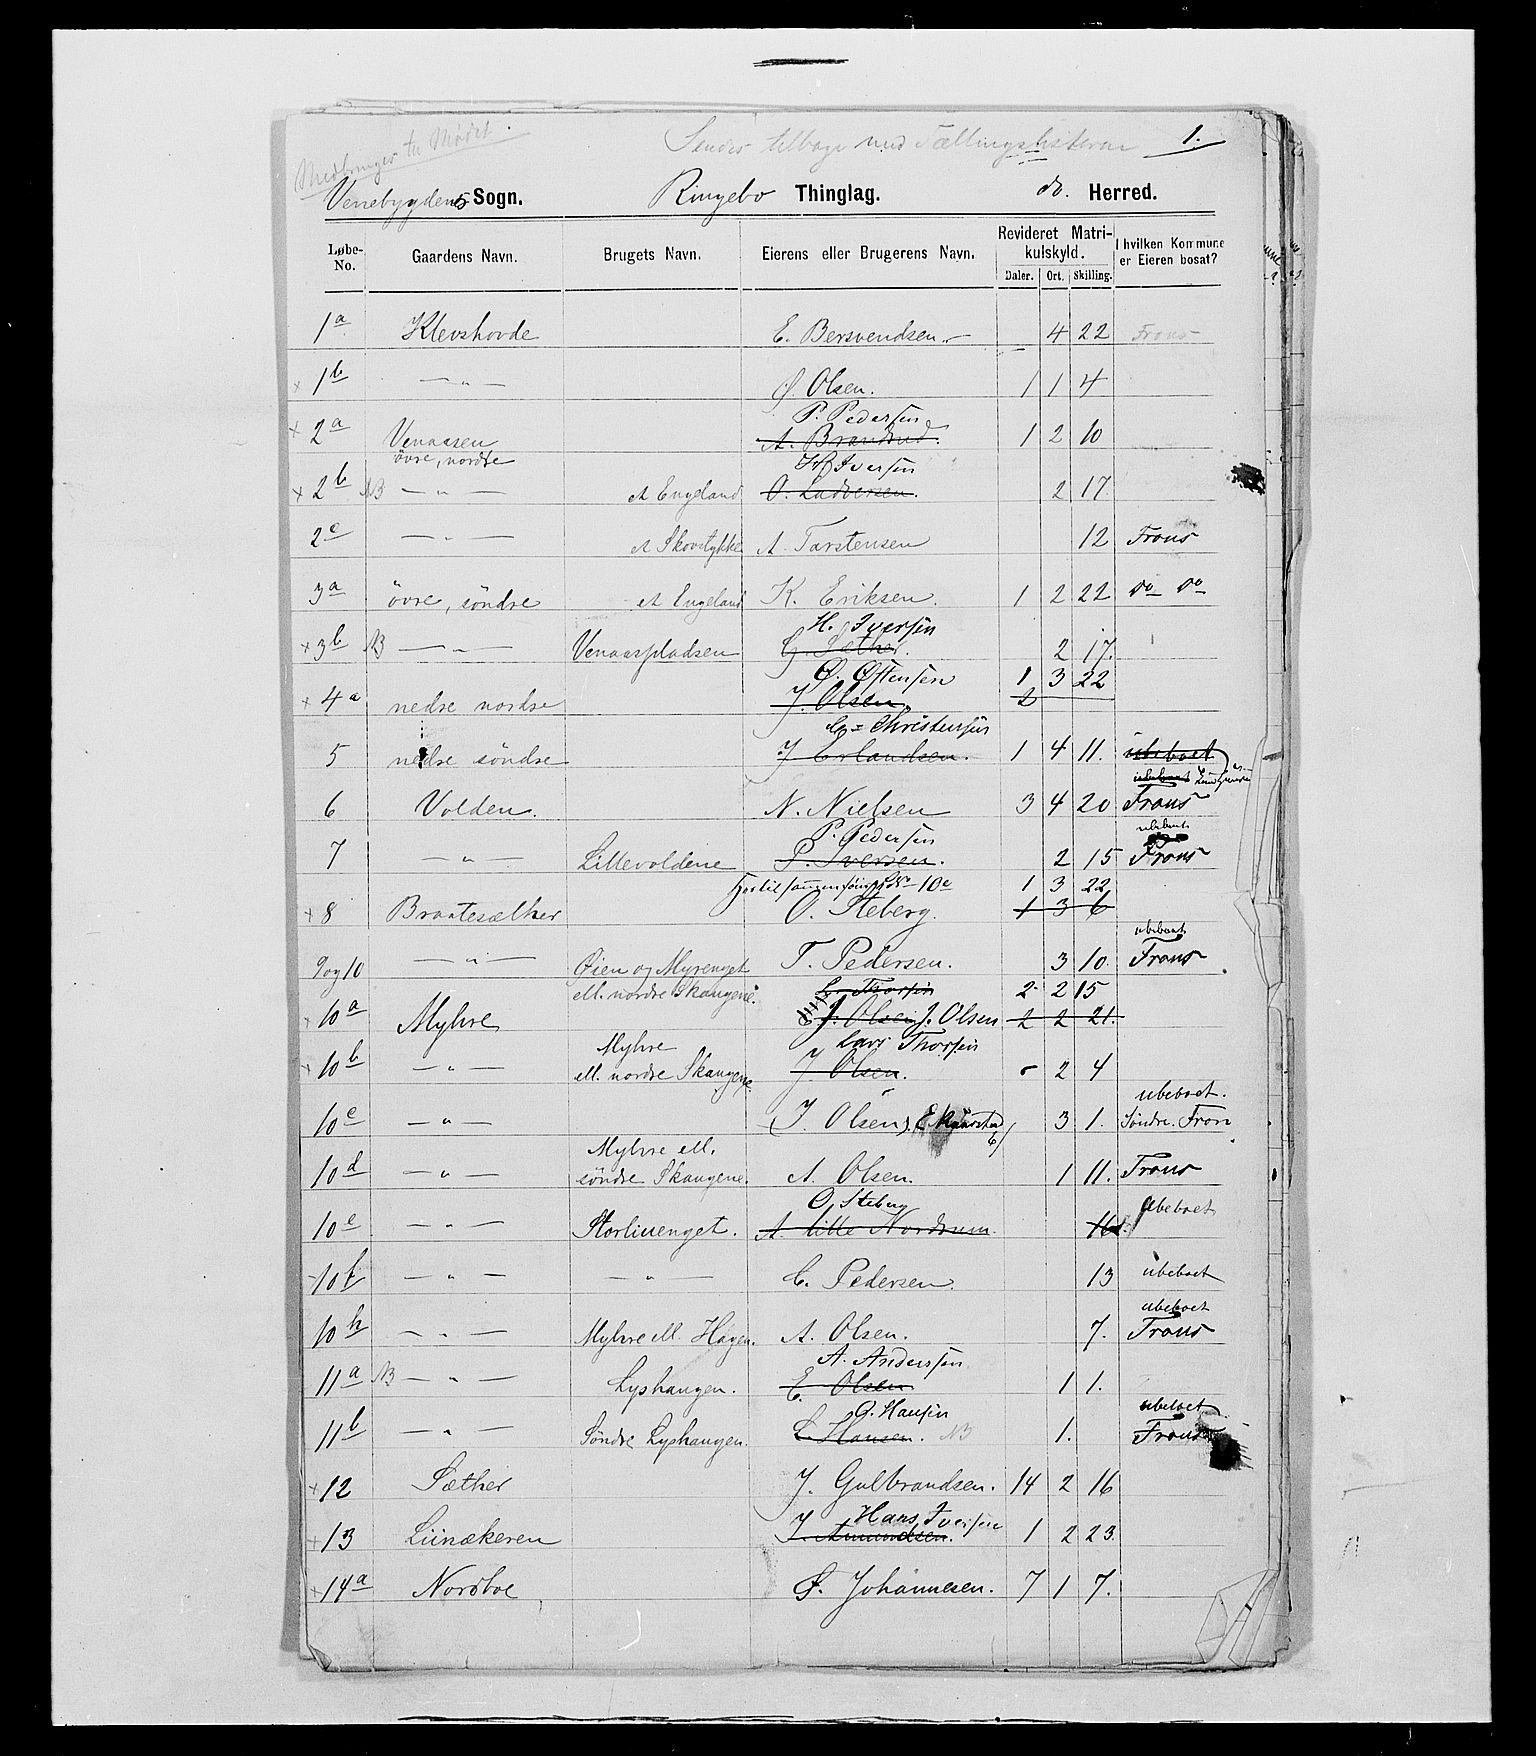 Medbringes til Mødet.
Sendes tilbage med Tællingslisterne 1.
Venebygdens Sogn. Ringebo Thinglag. do. Herred.
Løbe-No. Gaardens Navn. Brugets Navn. Eierens eller Brugerens Navn. Revideret Matrikulskyld. I hvilken Kommune er Eieren bosat?
Daler. Ort. Skilling.
1a Klevshovde E. Bersvendsen. — 4 22 Frons
× 1b — " — Olsen. 1 1 4
P. Pedersen
× 2a Venaasen A. Brandrud. 1 2 10
øvre, nordre H Iversen
× 2b NB — " — et Engeland O. Ludversen. 2 17
2c — " — et Skovstykke A. Torstensen 12 Frons
3a øvre, søndre et Engeland K. Eriksen. 1 2 22 do do
H. Iversen
× 3b NB — " — Venaaspladsen G. Sæther. 2 17.
O. Østensen 1 3 22
× 4a nedre nordre J. Olsen. 2
Christensen
5 nedre søndre J Erlandsen. 1 4 11. ubeboet
ubeboet
6 Volden. N. Nielsen 3 4 20 Frons
P. Pedersen ubeboet
7 — " — Lillevoldene P. Iversen. 2 15 Frons
10e 1 3 22
× 8 Braatesæther O. Steberg. 1 3 6
ubeboet
9 og 10 — " — Øien og Myrenget T. Pedersen. 3 10. Frons
ell. nordre Skaugene. L. Thorsen 2 2 15
10a Myhre J. Olsen J. Olsen 2 2 21.
Myhre Lars Thorsen
× 10b — " — ell. nordre Skaugene. J. Olsen. - 2 4
ubeboet.
10c — " — (J. Olsen). 3 1. Søndre Fron
Myhre ell.
10d — " — søndre Skaugene. A. Olsen. 1 11. Frons
O. Steberg ubeboet
10e — " — Storliuenget. A. lille Nordrum. 16.
10f — " — — " — C. Pedersen. 13 ubeboet
ubeboet
10h — " — Myhre ell. Hagen. A. Olsen. 7. Frons
A. Anderssen
11a NB — " — Lyshaugen. E. Olsen 1 1.
O. Hansen ubeboet
11b — " — Søndre Lyshaugen. L. Hansen. NB 1. Frons
× 12 Sæther J. Gulbrandsen. 14 2 16
Hans Iversen
× 13 Liinækeren J. Amundsen. 1 2 23.
× 14a Nordboe S. Johannesen. 7 1 7.